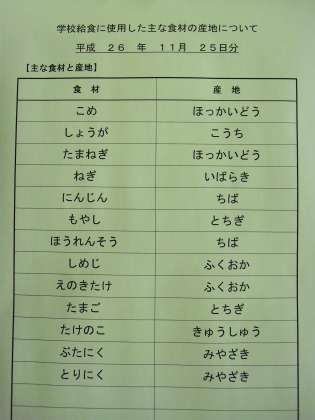 学校給食に使用した主な食材の産地について
平成 26 年 11月 25日分
【主な食材と産地】
食 材 産 地
こめ ほっかいどう
しょうが こうち
たまねぎ ほっかいどう
ねぎ いばらき
にんじん ちば
もやし とちぎ
ほうれんそう ちば
しめじ ふくおか
えのきたけ ふくおか
たまご とちぎ
たけのこ きゅうしゅう
ぶたにく みやざき
とりにく みやざき